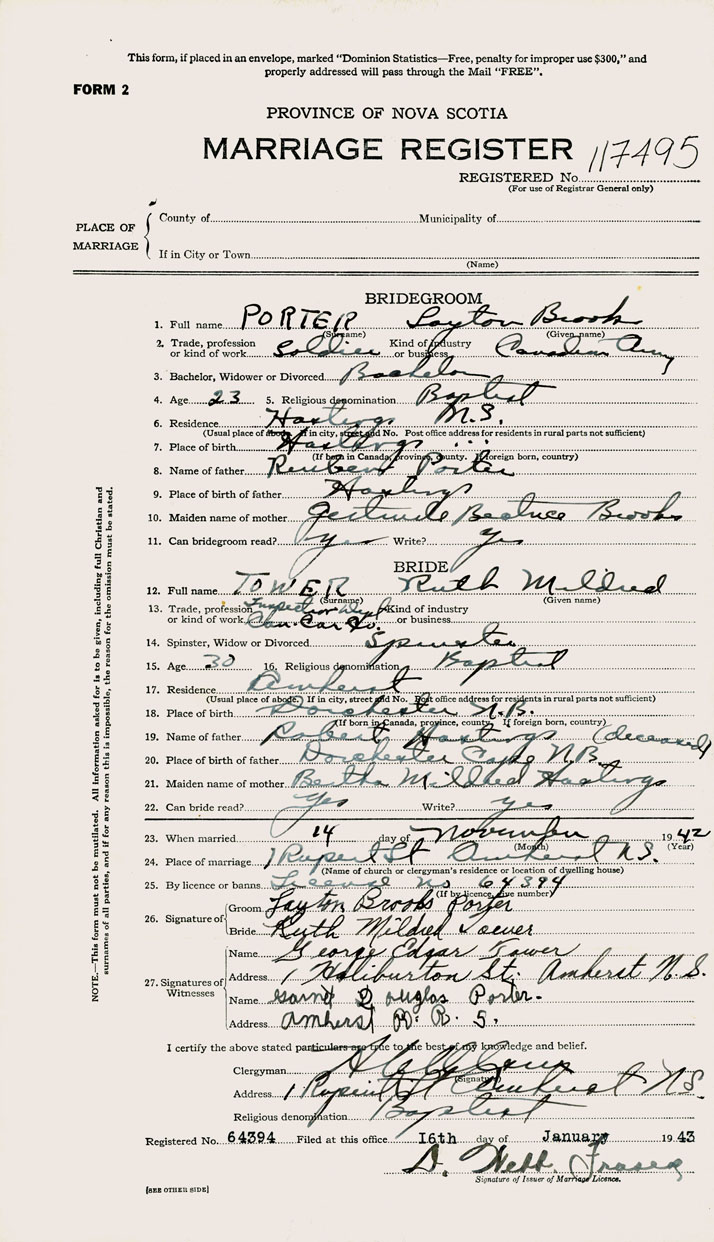 This form, if placed in an envelope, marked "Dominion Statistics—Free, penalty for improper use $300," and
properly addressed will pass through the Mail "FREE".
FORM 2
PROVINCE OF NOVA SCOTIA
MARRIAGE REGISTER 117495
REGISTERED No.
(For use of Registrar General only)
PLACE OF MARRIAGE
County of Municipality of
If in City or Town
(Name)
BRIDEGROOM
1. Full name PORTER Layton Brooks
(Surname) (Given name)
2. Trade, profession or kind of work Soldier Kind of industry or business Canadian Army
3. Bachelor, Widower or Divorced Bachelor
4. Age 23 5. Religious denomination Baptist
6. Residence Hastings N.S.
(Usual place of abode. If in city, street and No. Post office address for residents in rural parts not sufficient)
7. Place of birth Hastings
(If born in Canada, province, county. If foreign born, country)
8. Name of father Reuben Porter
9. Place of birth of father Hastings
10. Maiden name of mother Gertrude Beatrice Brooks
11. Can bridegroom read? Yes Write? Yes
BRIDE
12. Full name TOWER Ruth Mildred
(Surname) (Given name)
13. Trade, profession or kind of work Can. Car Co. Kind of industry or business
14. Spinster, Widow or Divorced Spinster
15. Age 30 16. Religious denomination Baptist
17. Residence Amherst
(Usual place of abode. If in city, street and No. Post office address for residents in rural parts not sufficient)
18. Place of birth Dorchester N.B.
(If born in Canada, province, county. If foreign born, country)
19. Name of father Robert Hastings (deceased)
20. Place of birth of father Dorchester Cape N.B.
21. Maiden name of mother Bertha Mildred Hastings
22. Can bride read? Yes Write? yes
23. When married 14 day of November 1942
(Month) (Year)
24. Place of marriage 1 Rupert St Amherst N.S.
(Name of church or clergyman's residence or location of dwelling house)
25. By licence or banns License No 64394
(If by licence, give number)
26. Signature of
Groom Layton Brooks Porter
Bride Ruth Mildred Tower
27. Signatures of Witnesses
Name George Edgar Tower
Address 1 Haliburton St. Amherst N.S.
Name Douglas Porter.
Address Amherst R. R. 5.
I certify the above stated particulars are true to the best of my knowledge and belief.
Clergyman
(Signature)
Address 1 Rupert St Amherst N.S.
Religious denomination Baptist
Registered No. 64394 Filed at this office 16th day of January 1943
D. Webb Fraser
Signature of Issuer of Marriage Licence.
[SEE OTHER SIDE]
NOTE.—This form must not be mutilated. All information asked for is to be given, including full Christian and
surnames of all parties, and if for any reason this is impossible, the reason for the omission must be stated.